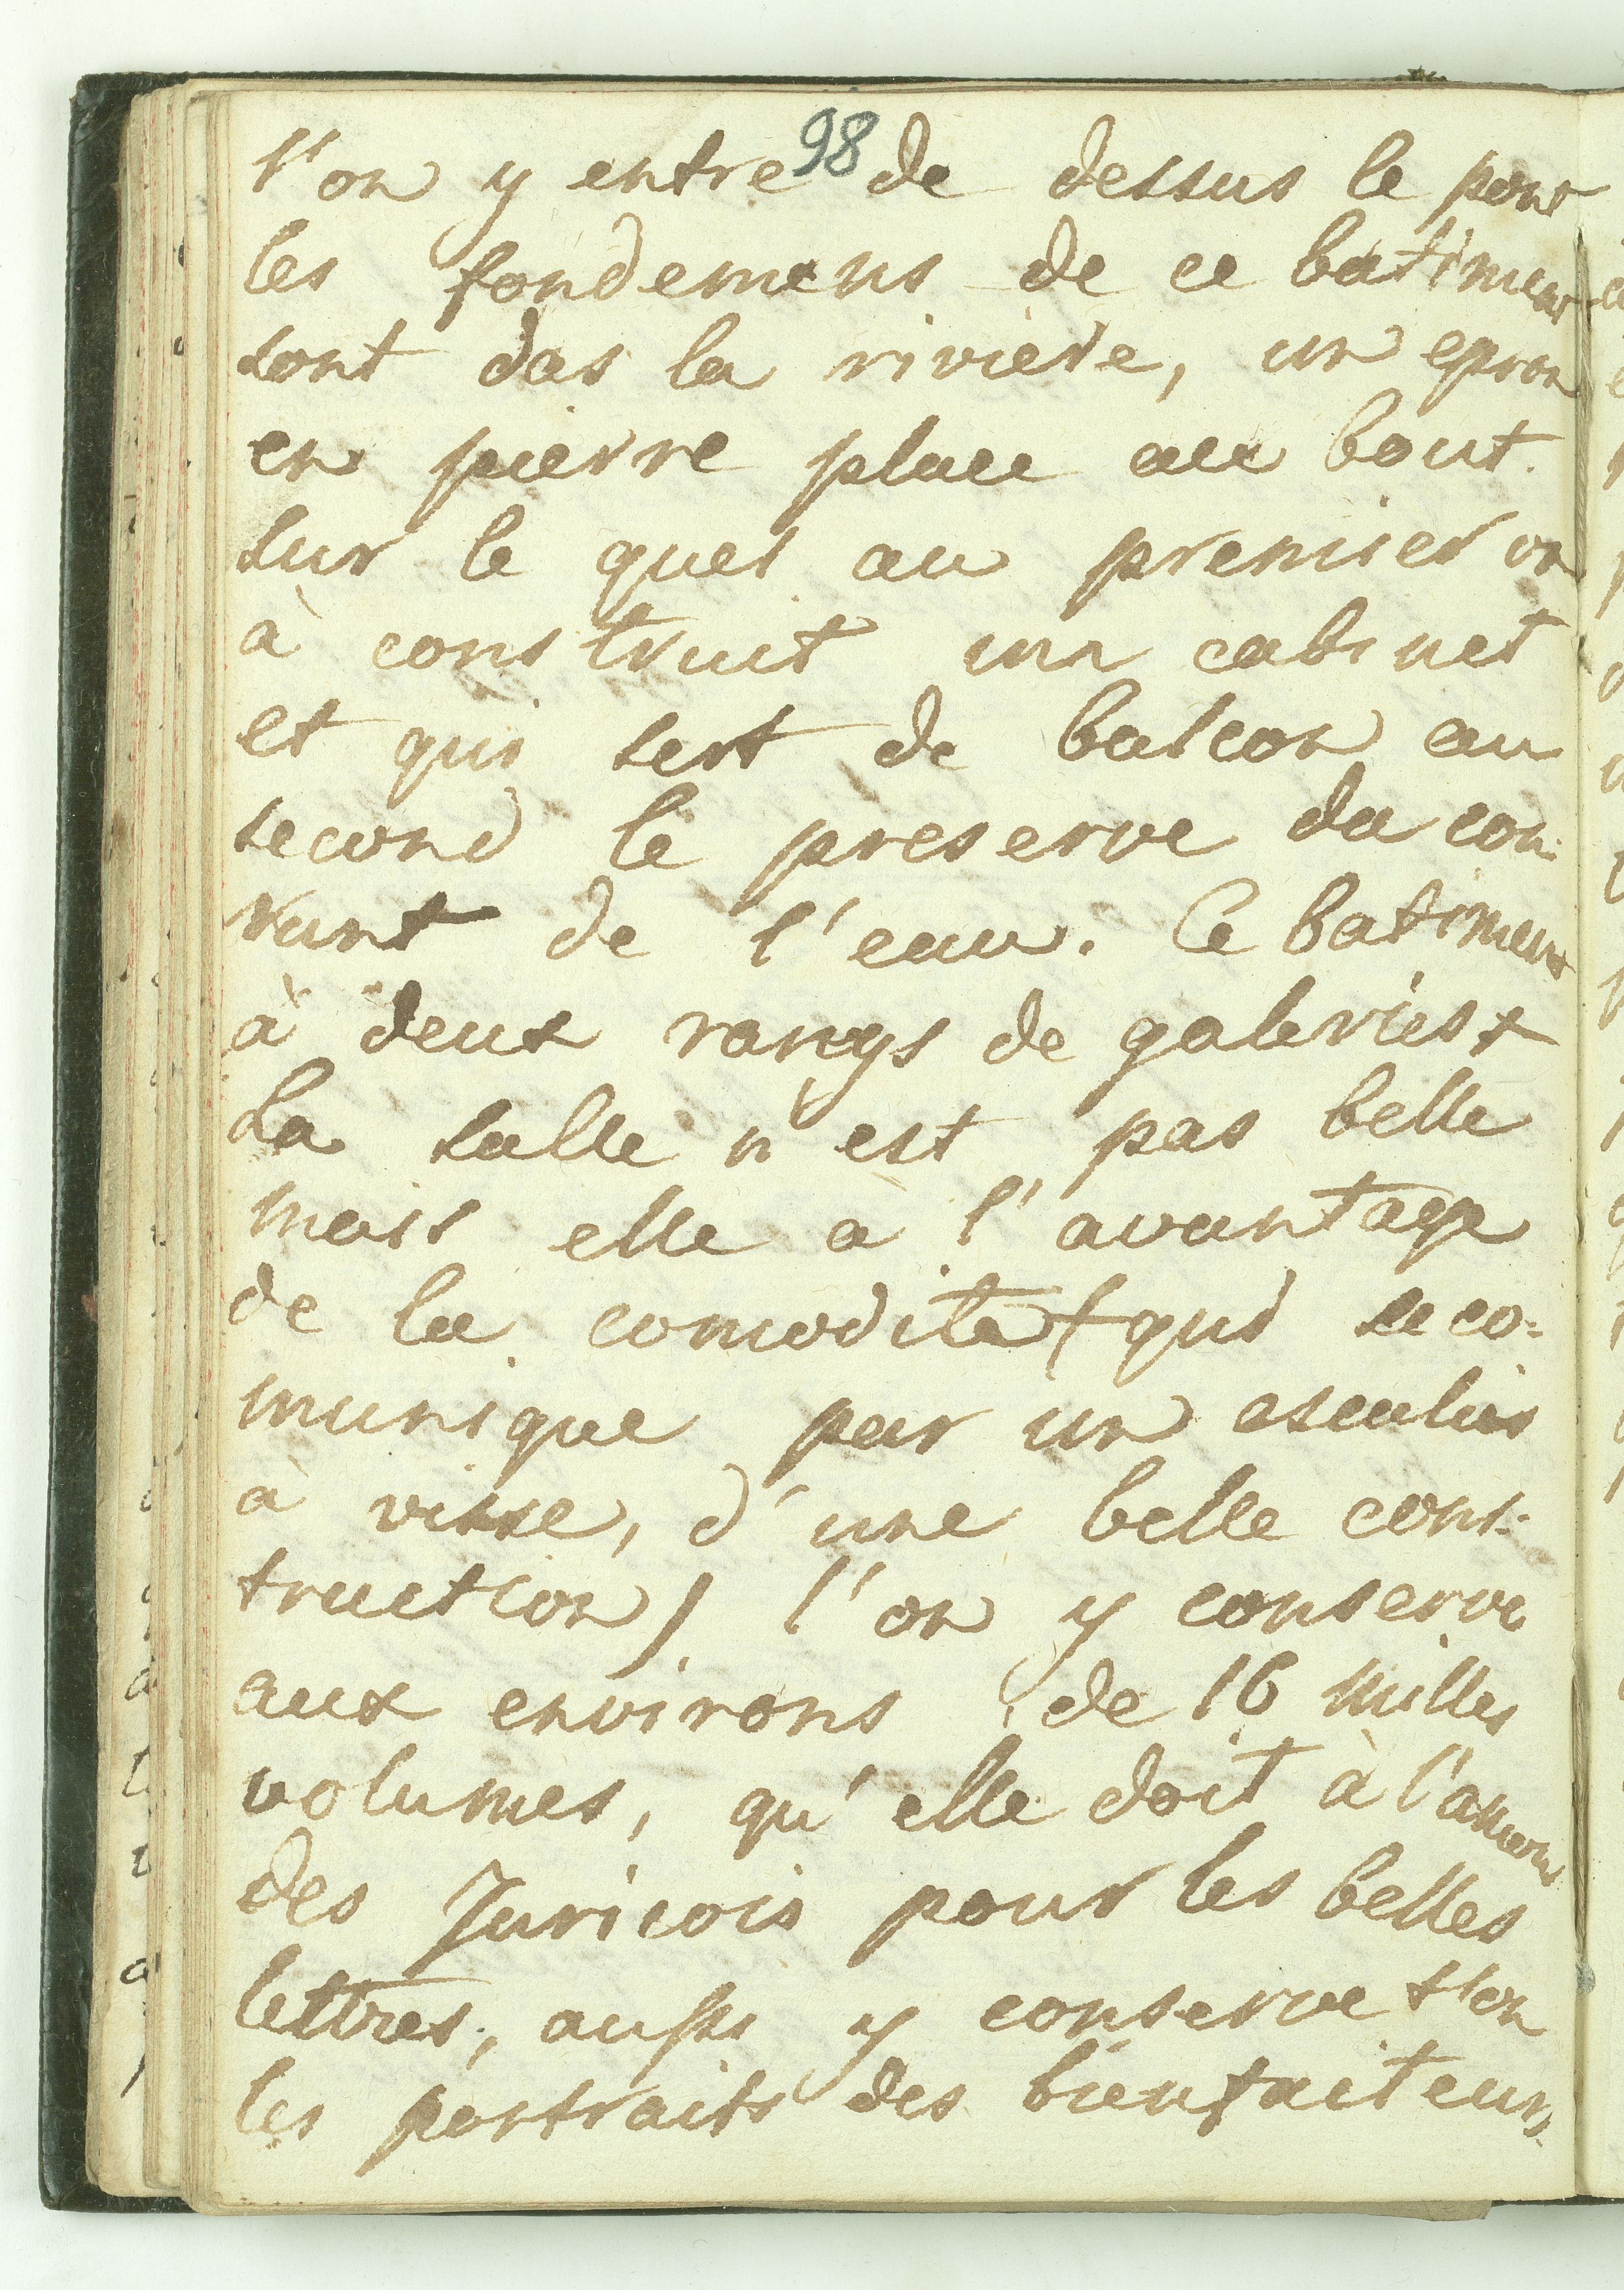 98
l'on y entre de dessus le pont
les fondemens de ce batiment
sont das la riviere, un epron
en pierre place au bout
sur le quel au premier on
à construit un cabinet
et qui sert de balcon au
second le preserve du cou-
rant de l'eau. Ce batiment
à deux rangs de galeries +
La salle n'est pas belle
mais elle a l'avantage
de la comodité (qui se co=
munique par un escalier
à visse, d'une belle cons-
truction) l'on y conserve
aux environs de 16 milles
volumes, qu'elle doit à l'amour
des Juricois pour les belles
lettres, aussi y conserve t'on
les portraits des bienfaiteurs.